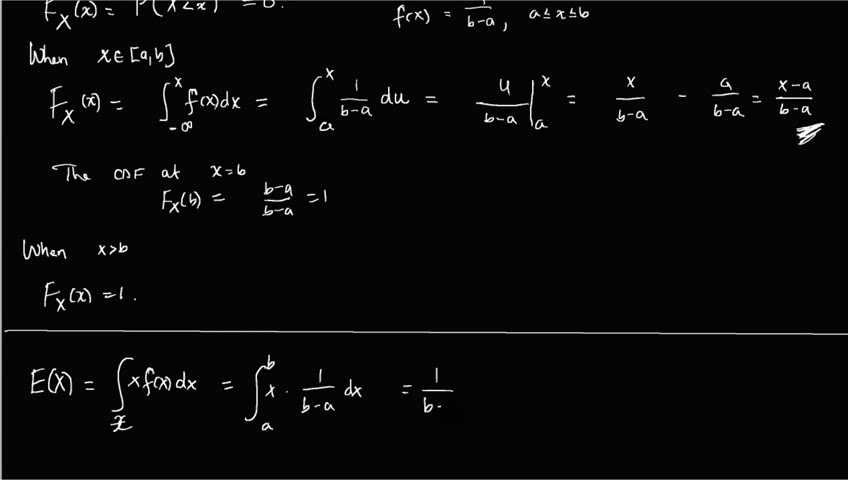 F_X(x) = P(X<x) = 0.
f(x) = 1/(b-a), a≤x≤b
When x∈[a,b]
F_X(x) = ∫_{-∞}^{x} f(x)dx = ∫_{a}^{x} 1/(b-a) du = u/(b-a) |_{a}^{x} = x/(b-a) - a/(b-a) = (x-a)/(b-a)
The CDF at x=b
F_X(b) = (b-a)/(b-a) = 1
When x>b
F_X(x) = 1.
E(X) = ∫_{x} x f(x) dx = ∫_{a}^{b} x · 1/(b-a) dx = 1/(b-